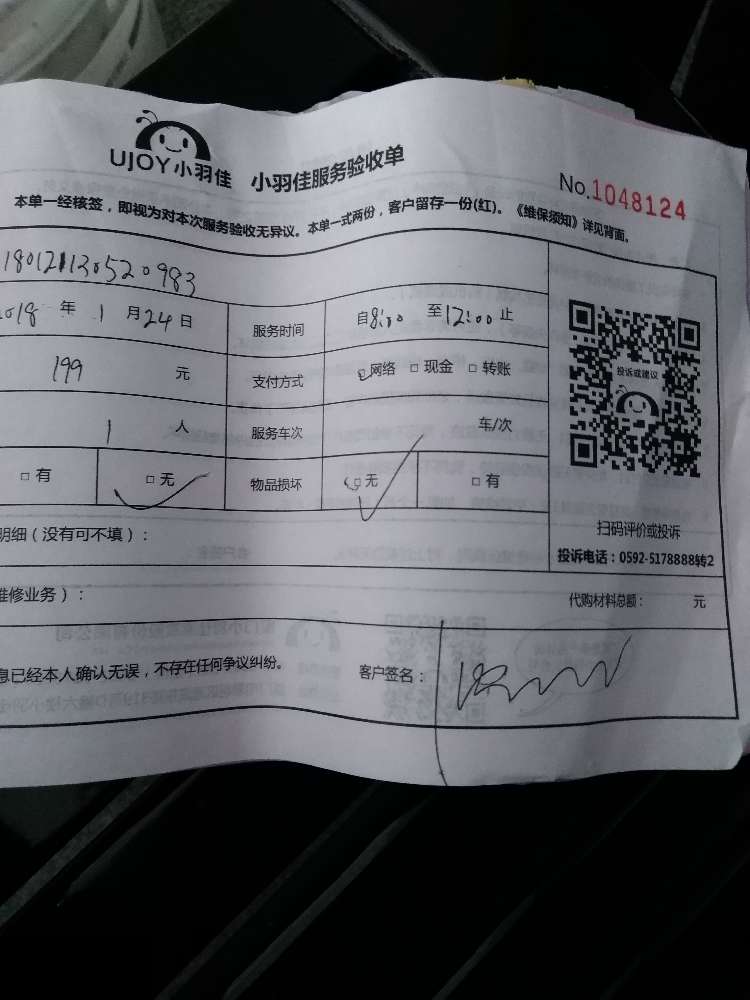 UJOY小羽佳 小羽佳服务验收单
No.1048124
本单一经核签，即视为对本次服务验收无异议。本单一式两份，客户留存一份(红)。《维保须知》详见背面。
180121130520983
2018 年 1 月 24 日 服务时间 自 8:00 至 12:00 止
199 元 支付方式 网络 □ 现金 □ 转账
1 人 服务车次 车/次
□ 有 □ 无 物品损坏 □ 无 □ 有
投诉或建议
扫码评价或投诉
投诉电话：0592-5178888转2
明细（没有可不填）：
维修业务）： 代购材料总额： 元
息已经本人确认无误，不存在任何争议纠纷。 客户签名：